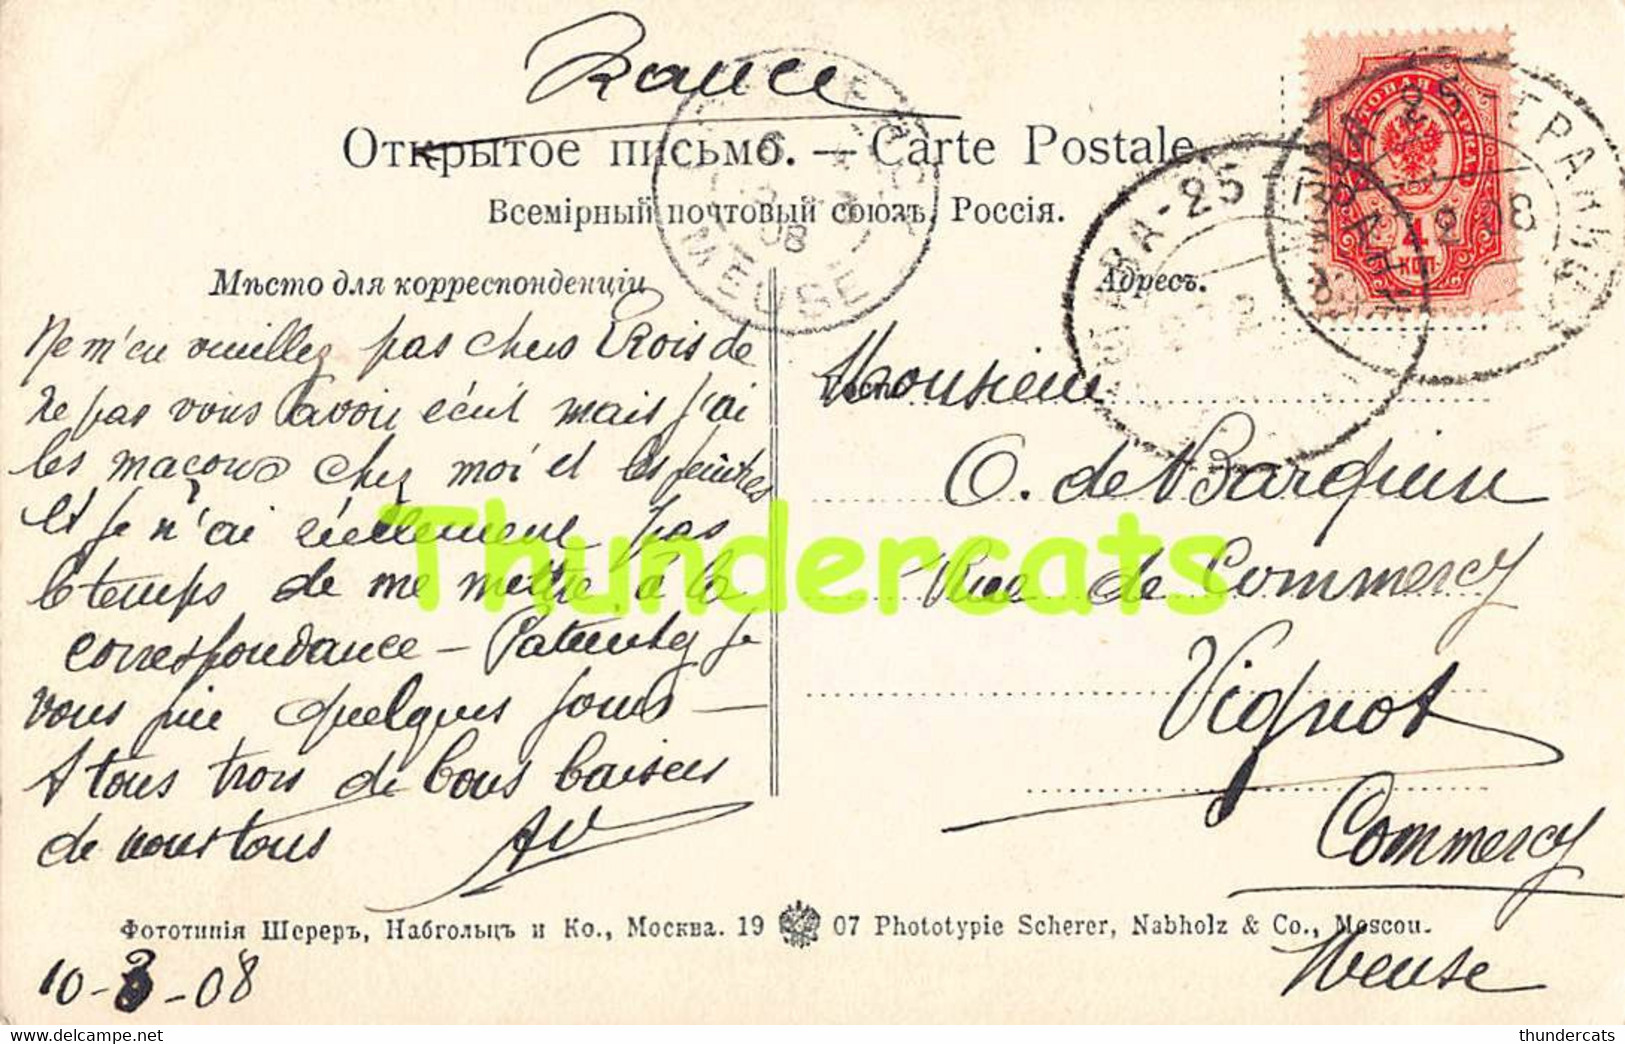 France
Открытое письмо. — Carte Postale.
Всемірный почтовый союзъ, Россія.
Мѣсто для корреспонденціи
Адресъ.
4
КОП.
MEUSE
08
Ne m'en veuillez pas chers Trois de
ne pas vous avoir écrit mais j'ai
les maçons chez moi et les peintres
et je n'ai réellement pas
le temps de me mettre à la
correspondance — Patientez je
vous prie quelques jours —
A tous trois de bons baisers
de nous tous AV
Monsieur
O. de Barquin
Rue de Commercy
Vignot
Commercy
Meuse
Thundercats
Фототипія Шереръ, Набгольцъ и Ко., Москва. 19 07 Phototypie Scherer, Nabholz & Co., Moscou.
10-3-08
thundercats